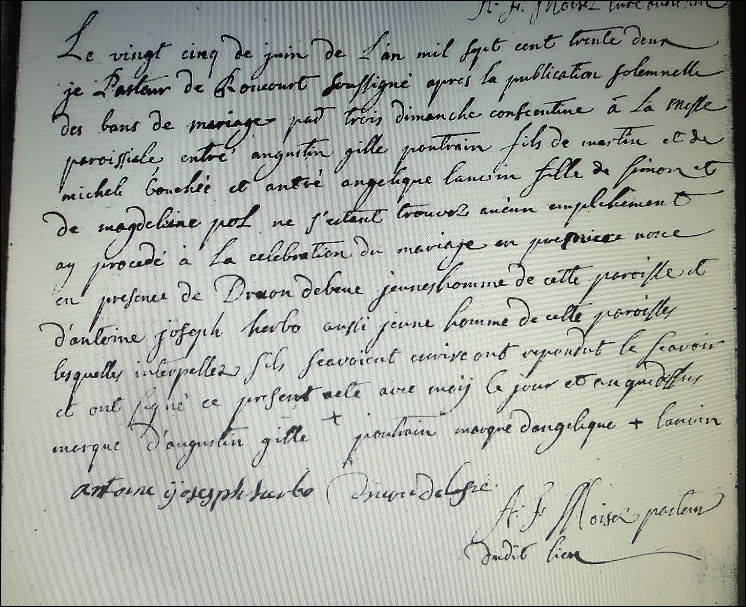 A. F. Moisez
Le vingt cinq de juin de L'an mil sept cent trente deux
je Pasteur de Roucourt soussigné apres la publication solemnelle
des bans de mariage par trois dimanche consecutive à La messe
paroissiale entre augustin gille pontrain fils de martin et de
michele bouchée et entré angelique lancin fille de simon et
de magdelaine pol ne s'estant trouvez aucun empechement
ay procedé à La celebration du mariage en premiere noce
en presence de Druon debeue jeuneshomme de cette paroisse et
d'antoine joseph herbo aussi jeune homme de cette paroisses
lesquelles interpellez s'ils scavoient ecrire ont repondut le scavoir
et ont signé ce present acte avec meij le jour et an quedessus
merque d'augustin gille + pontrain marque d'angelique + lancin
antoine ijosesph herbo
A. F. Moisez pasteur
dudit lieu